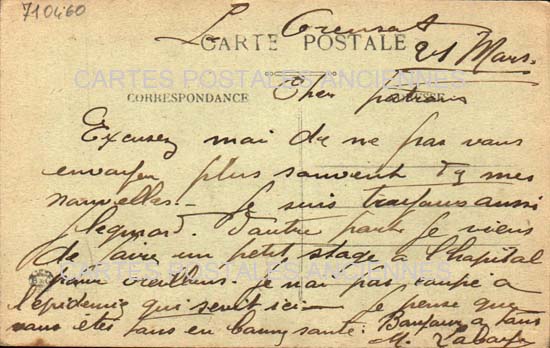 710460
Le Creusot
CARTE POSTALE
21 Mars.
CARTES POSTALES ANCIENNES
CORRESPONDANCE
Cher patron
Excusez moi de ne pas vous
envoyer plus souvent de mes
nouvelles - Je suis toujours aussi
flegmard. D'autre part je viens
de faire un petit stage à l'hopital
CARTES POSTALES ANCIENNES
pour oreillons. je n'ai pas coupé à
l'épidémie qui sevit ici - je pense que
vous êtes tous en bonne santé. Bonjour à tous
M.